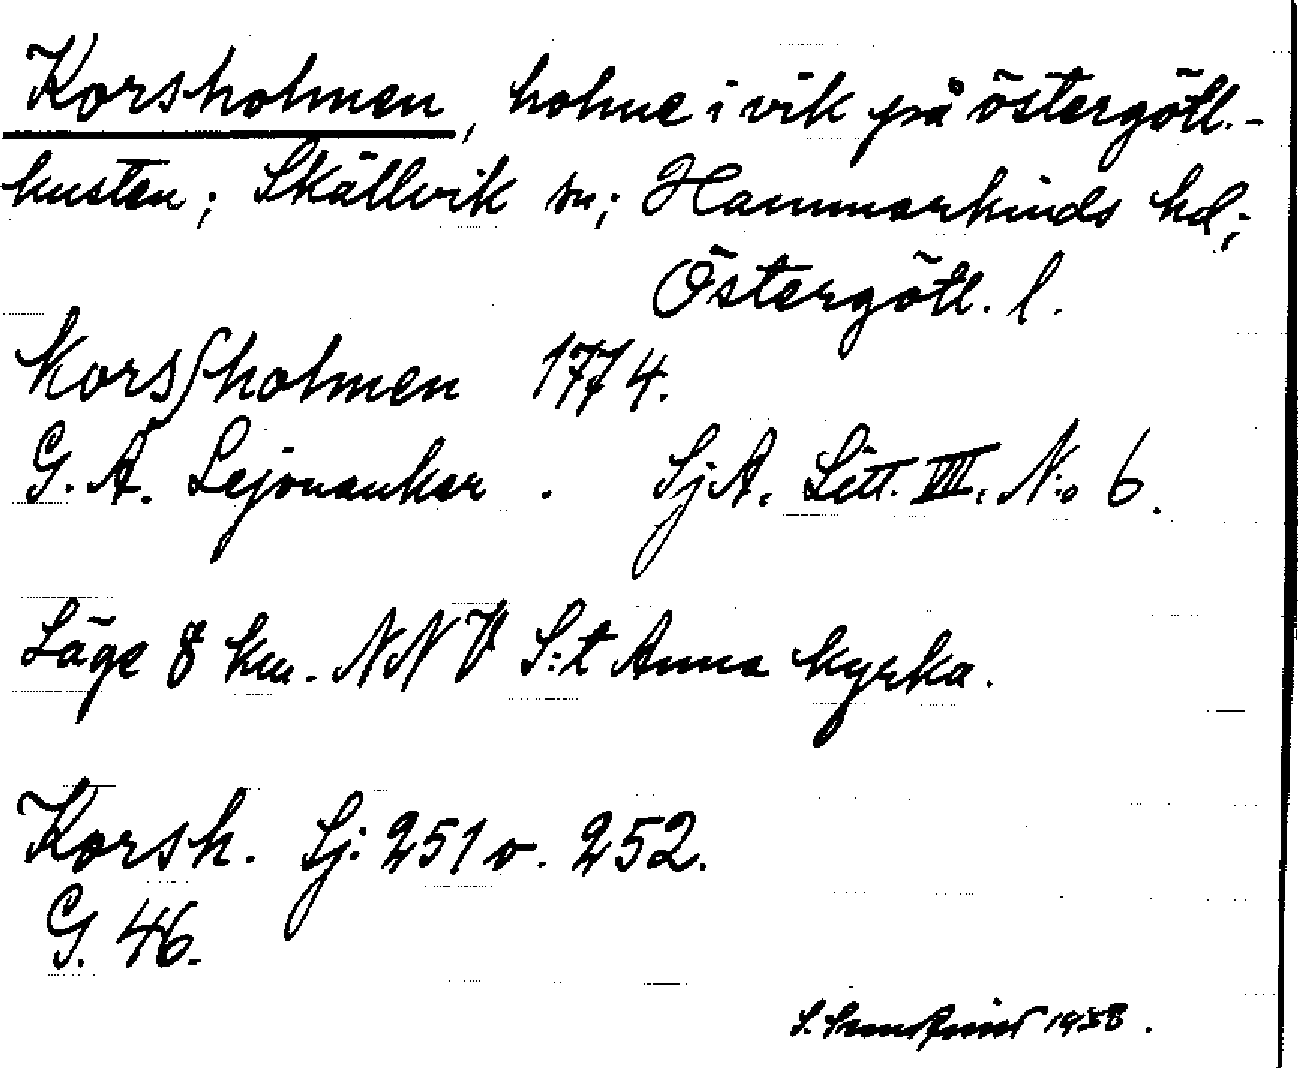 Korsholmen, holme i vik på östergötl.-
kusten; Skällvik sn; Hammarkinds hd;
Östergötl. l.
Korssholmen 1774.
G. A. Lejonankar. Sj A. Litt. VIII. N:o 6.
Läge 8 km. NNV S:t Anna kyrka.
Korsh. Sj. 251 o. 252.
G. 46.
S. 1938.